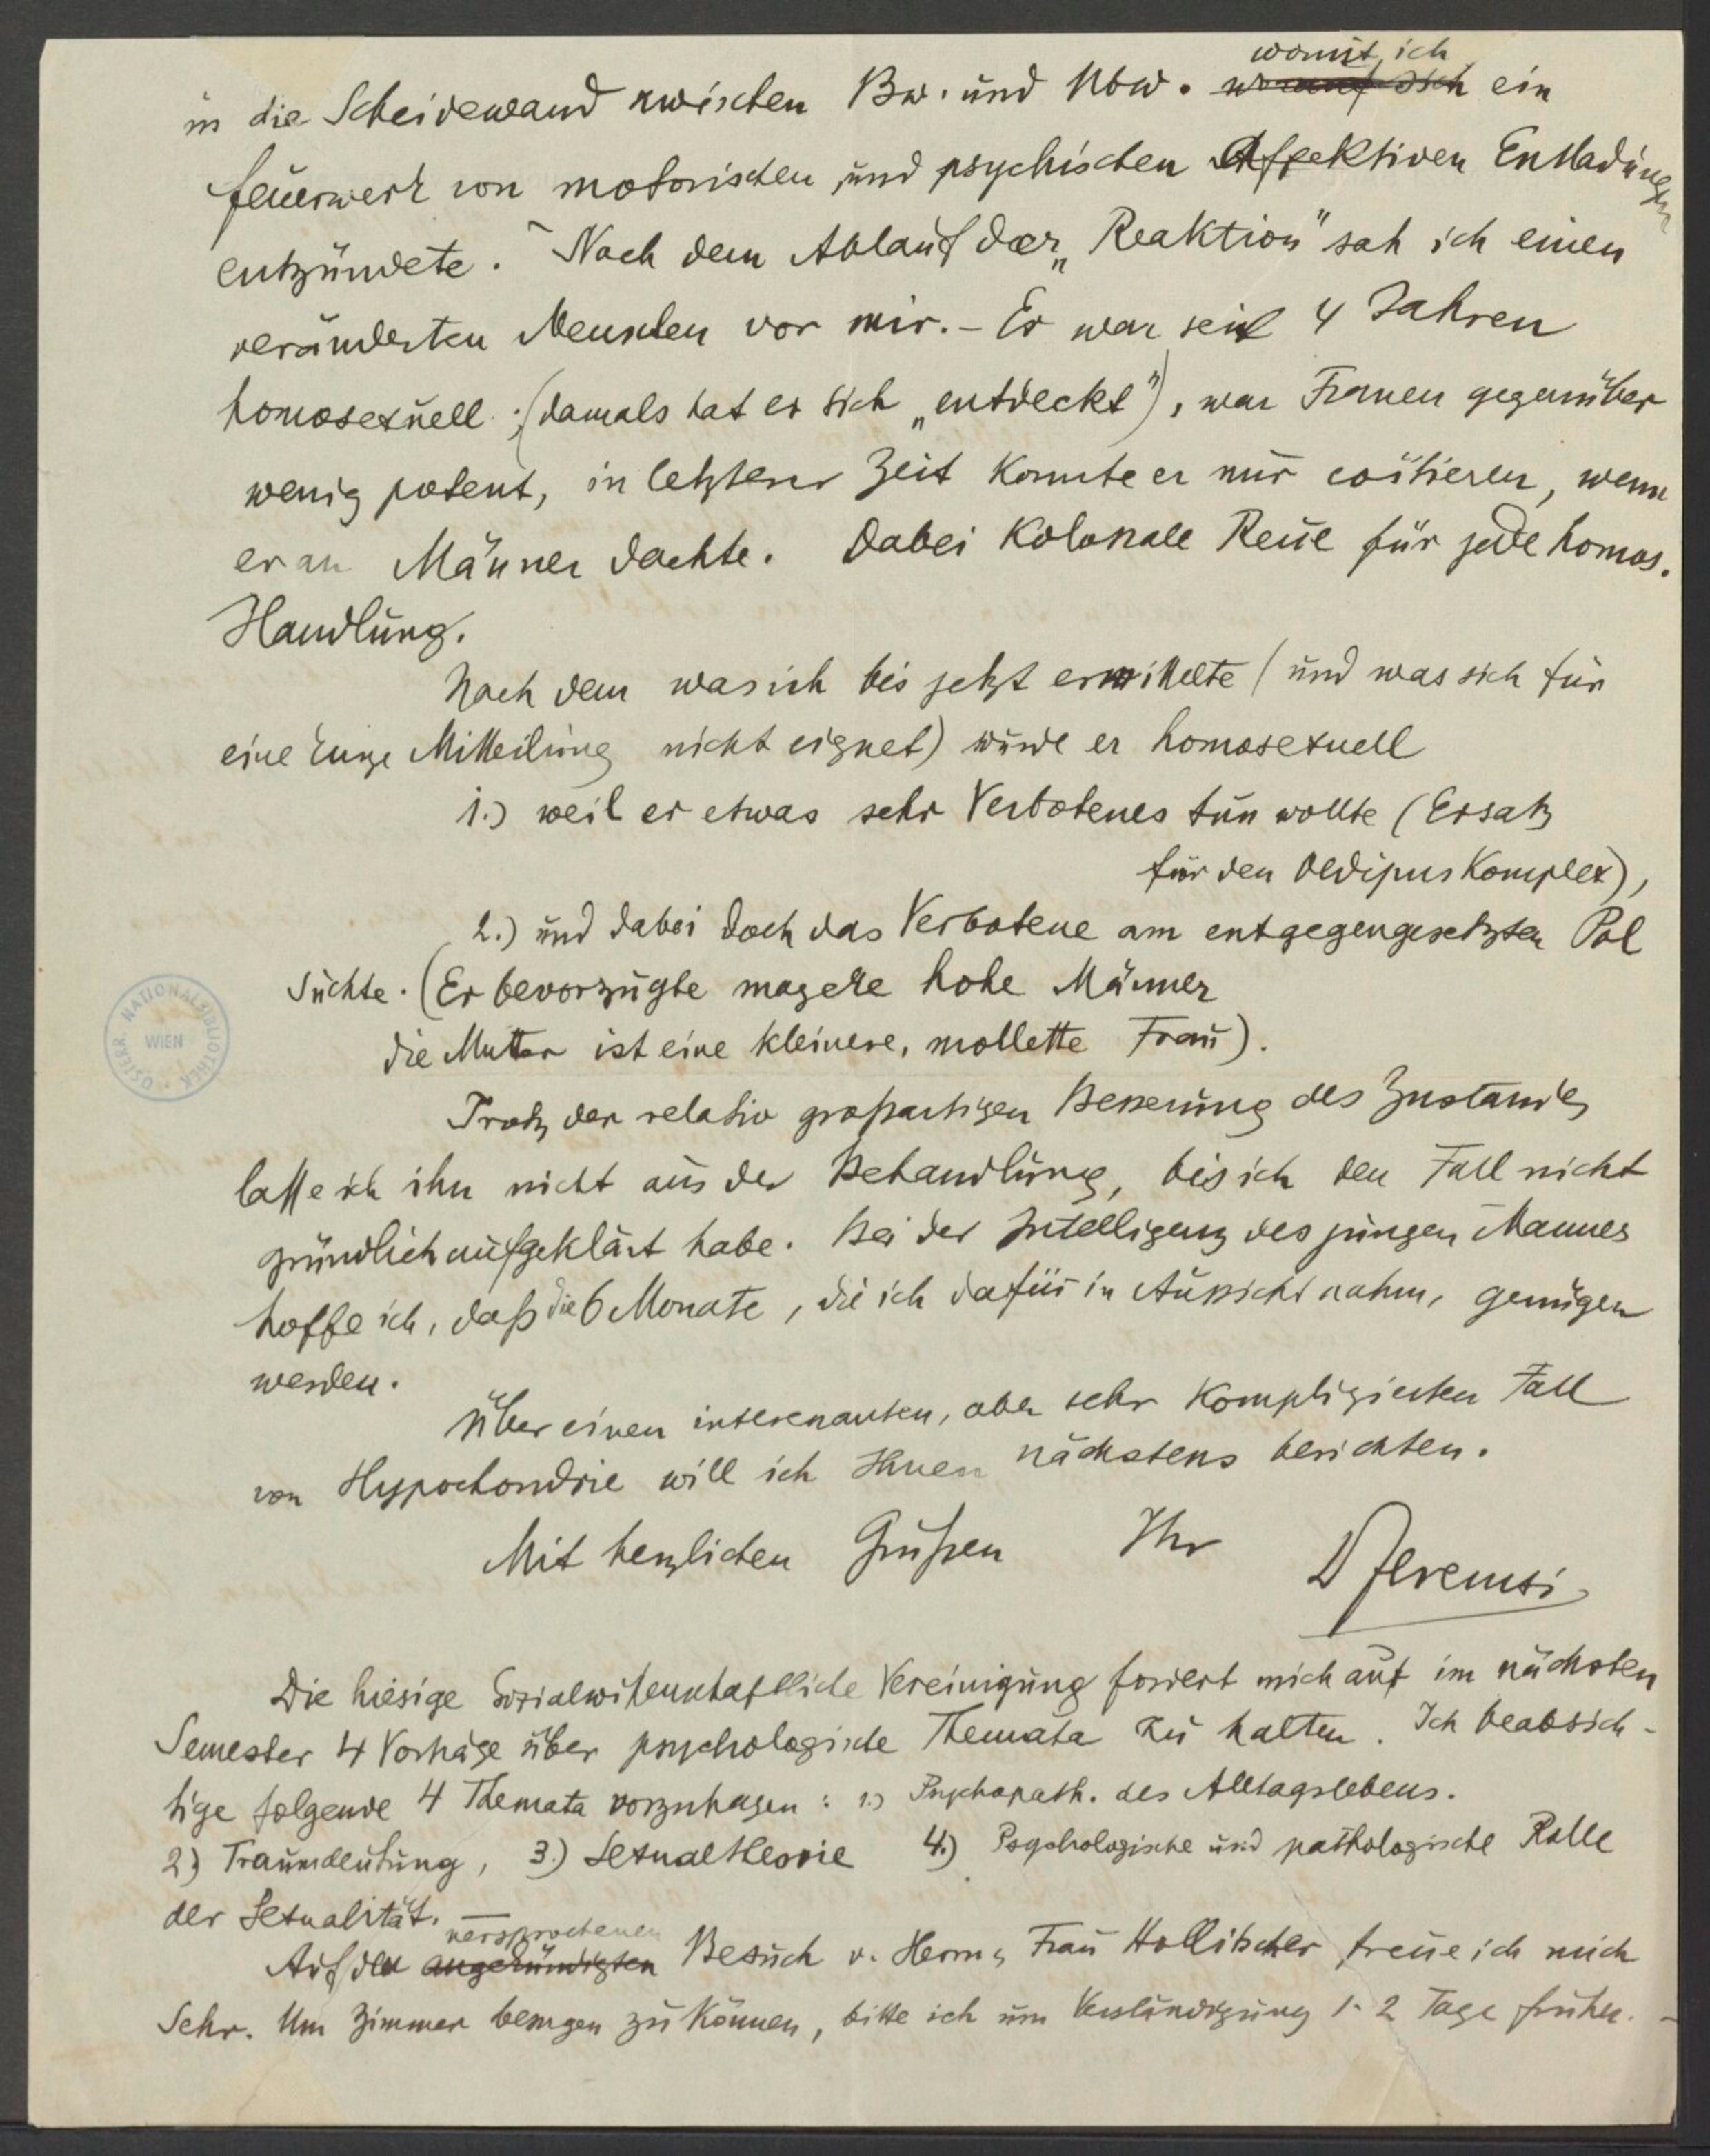 womit ich
in die Scheidewand zwischen Bw. und Ubw. ein
Feuerwerk von motorischen und psychischen Affektiven Entladungen
entzündete. Nach dem Ablauf der „Reaktion" sah ich einen
veränderten Menschen vor mir. – Er war seit 4 Jahren
homosexuell (damals hat er sich „entdeckt"), war Frauen gegenüber
wenig potent, in letzterer Zeit konnte er nur coitieren, wenn
er an Männer dachte. Dabei kolossale Reue für jede homos.
Handlung.
Nach dem was ich bis jetzt ermittelte (und was sich für
eine kurze Mitteilung nicht eignet) wurde er homosexuell
1.) weil er etwas sehr Verbotenes tun wollte (Ersatz
für den Oedipus Komplex),
2.) und dabei doch das Verbotene am entgegengesetzten Pol
suchte. (Er bevorzugte magere hohe Männer
die Mutter ist eine kleinere, mollette Frau).
Trotz der relativ großartigen Besserung des Zustandes
lasse ich ihn nicht aus der Behandlung, bis ich den Fall nicht
gründlich aufgeklärt habe. Bei der Intelligenz des jungen Mannes
hoffe ich, daß die 6 Monate, die ich dafür in Aussicht nahm, genügen
werden.
Über einen interessanten, aber sehr komplizierten Fall
von Hypochondrie will ich Ihnen nächstens berichten.
Mit herzlichen Grüßen Ihr
D Ferenczi
Die hiesige Sozialwissenschaftliche Vereinigung fordert mich auf im nächsten
Semester 4 Vorträge über psychologische Themata zu halten. Ich beabsich-
tige folgende 4 Themata vorzutragen: 1.) Psychopath. des Alltagslebens.
2) Traumdeutung, 3.) Sexualtheorie 4.) Psychologische und pathologische Rolle
der Sexualität. –
versprochenen
Auf den angekündigten Besuch v. Herrn & Frau Hollitscher freue ich mich
sehr. Um Zimmer besorgen zu können, bitte ich um Verständigung 1-2 Tage früher. –
ÖSTERR. NATIONALBIBLIOTHEK
WIEN